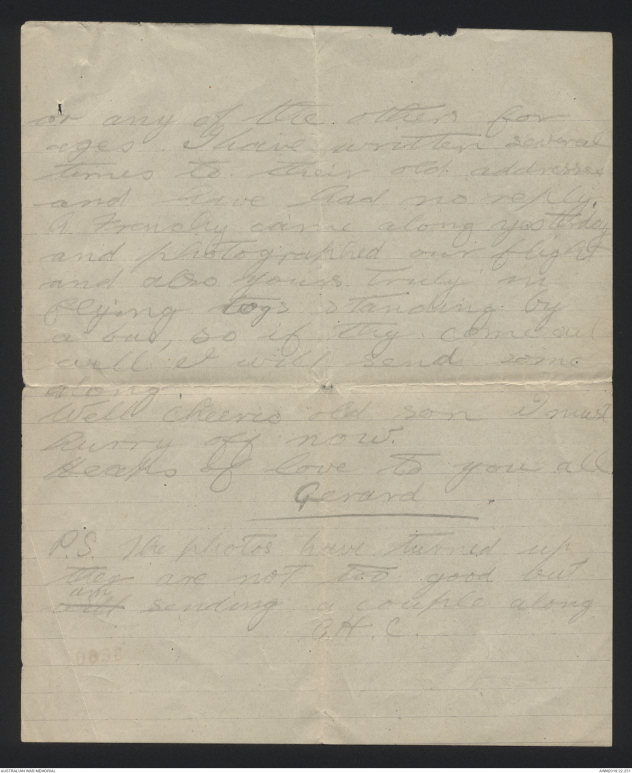 or any of the others for
ages. I have written several
times to their old addresses
and have had no reply.
A Frenchy came along yesterday
and photographed our flight
and also yours truly in
flying togs standing by
a bus, so if they come out
well, I will send some
along.
Well cheerio old son I must
hurry off now.
Heaps of love to you all
Gerard.
P.S. The photos have turned up
they are not too good but
am
sending a couple along
G.H.C.
AUSTRALIAN WAR MEMORIAL